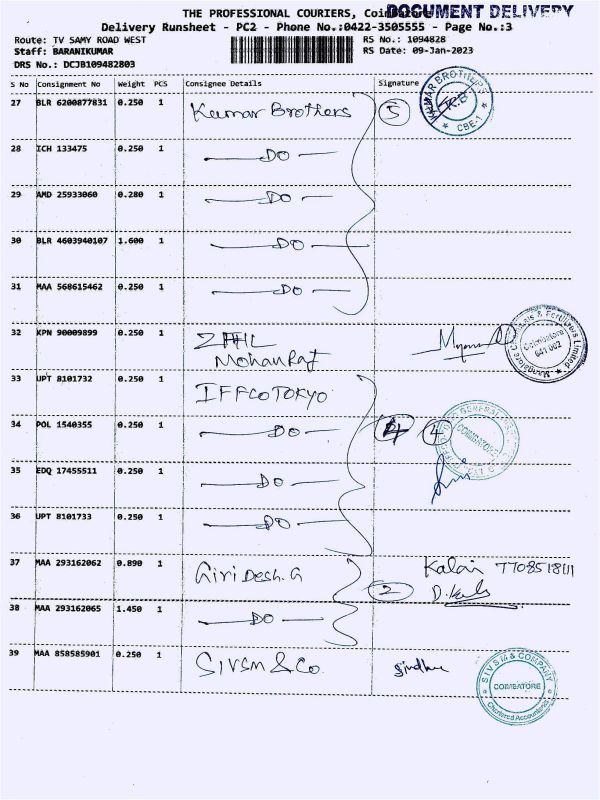 THE PROFESSIONAL COURIERS, Coimbatore
DOCUMENT DELIVERY
Delivery Runsheet - PC2 - Phone No.:0422-3505555 - Page No.:3
Route: TV SAMY ROAD WEST RS No.: 1094828
Staff: BARANIKUMAR RS Date: 09-Jan-2023
DRS No.: DCJB109482803
S No Consignment No Weight PCS Consignee Details Signature
27 BLR 6200877831 0.250 1 Kumar Brothers 5
KUMAR BROTHERS CBE-1
28 ICH 133475 0.250 1 DO
29 AMD 25933060 0.280 1 DO
30 BLR 4603940107 1.600 1 DO
31 MAA 568615462 0.250 1 DO
32 KPN 90009899 0.250 1
MohanRaj
Mangalore Chemicals & Fertilizers Limited
Coimbatore
641 002
33 UPT 8101732 0.250 1 IFFCO TOKYO
34 POL 1540355 0.250 1 DO 4
COIMBATORE
35 EDQ 17455511 0.250 1 DO
36 UPT 8101733 0.250 1 DO
37 MAA 293162062 0.890 1 Giridesh.G 2 Kalai
38 MAA 293162065 1.450 1 DO
39 MAA 858585901 0.250 1 SIVSM & Co. Sindhu
SIVSM & COMPANY
COIMBATORE
Chartered Accountants